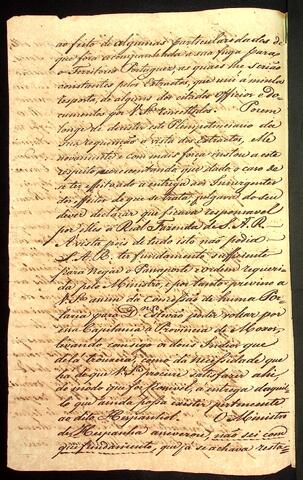 ao feito de algumas particularidades de
que fora acompanhada a sua fuga para
o Territorio Portuguez, as quaes lhe serião
constantes pelos Extractos, que uni á minha
resposta, de alguns dos citados officios e do-
cumentos por V.S.ª remettidos. Porem
longe de desistir este Plenipotenciario da
Sua requisição á vista dos Extractos, de
novamente e com mais força instou a este
respeito, accrescentando que dado o caso de
a ter effeituado a entrega dos Insurgentes
do seu
dever declarar que ficava responsavel
por elles á Real Fazenda de S. A. R.
A vista pois de tudo isto não podia
S. A. R. ter fundamento sufficiente
para negar o Passaporte e ordem requeri-
da pelo Ministro, e por tanto previno a
V.S.ª assim da concessão de huma Por-
taria para D. Octavio poder voltar por
essa Capitania á Provincia de Moxos,
levando consigo os dous Indios que
de la trouxera, como da necessidade que
ha de que V.S.ª procure satisfazer ahi,
do modo que for possivel, a entrega daquil-
lo que ainda possa existir pertencente
ao dito Hespanhol. O Ministro
de Hespanha annunciou, não sei com
que fundamento, que já se achava resta-